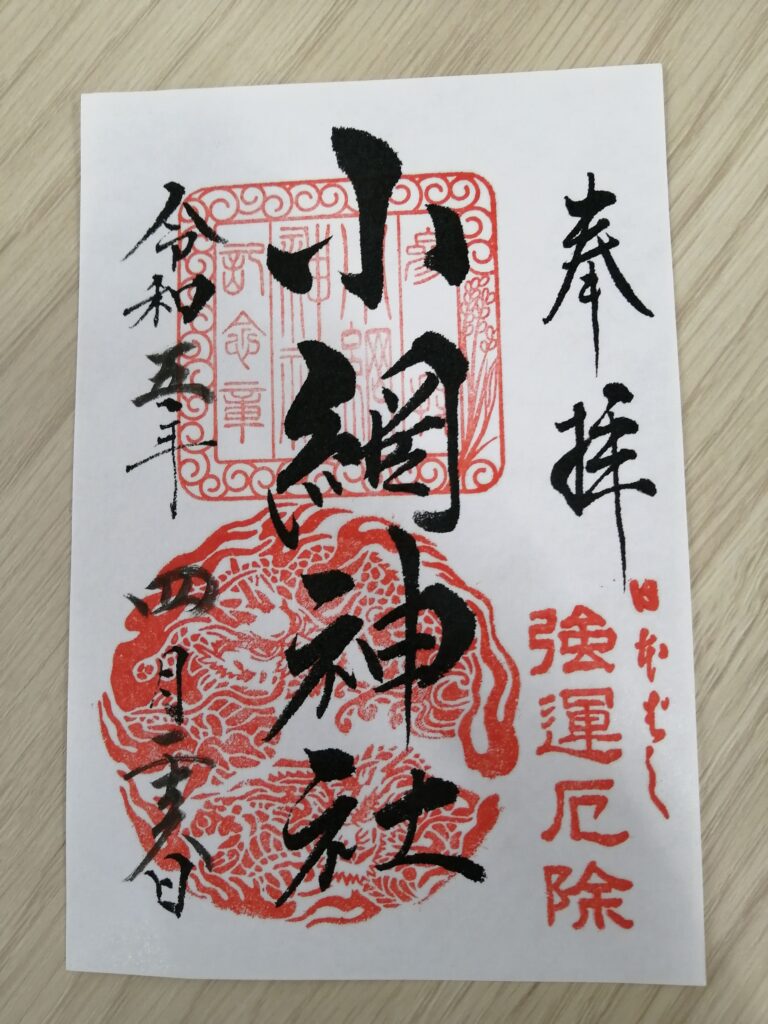 奉拝
日本ばし
強運厄除
小網神社
小網
神社
記念章
令和五年
四月二十八日